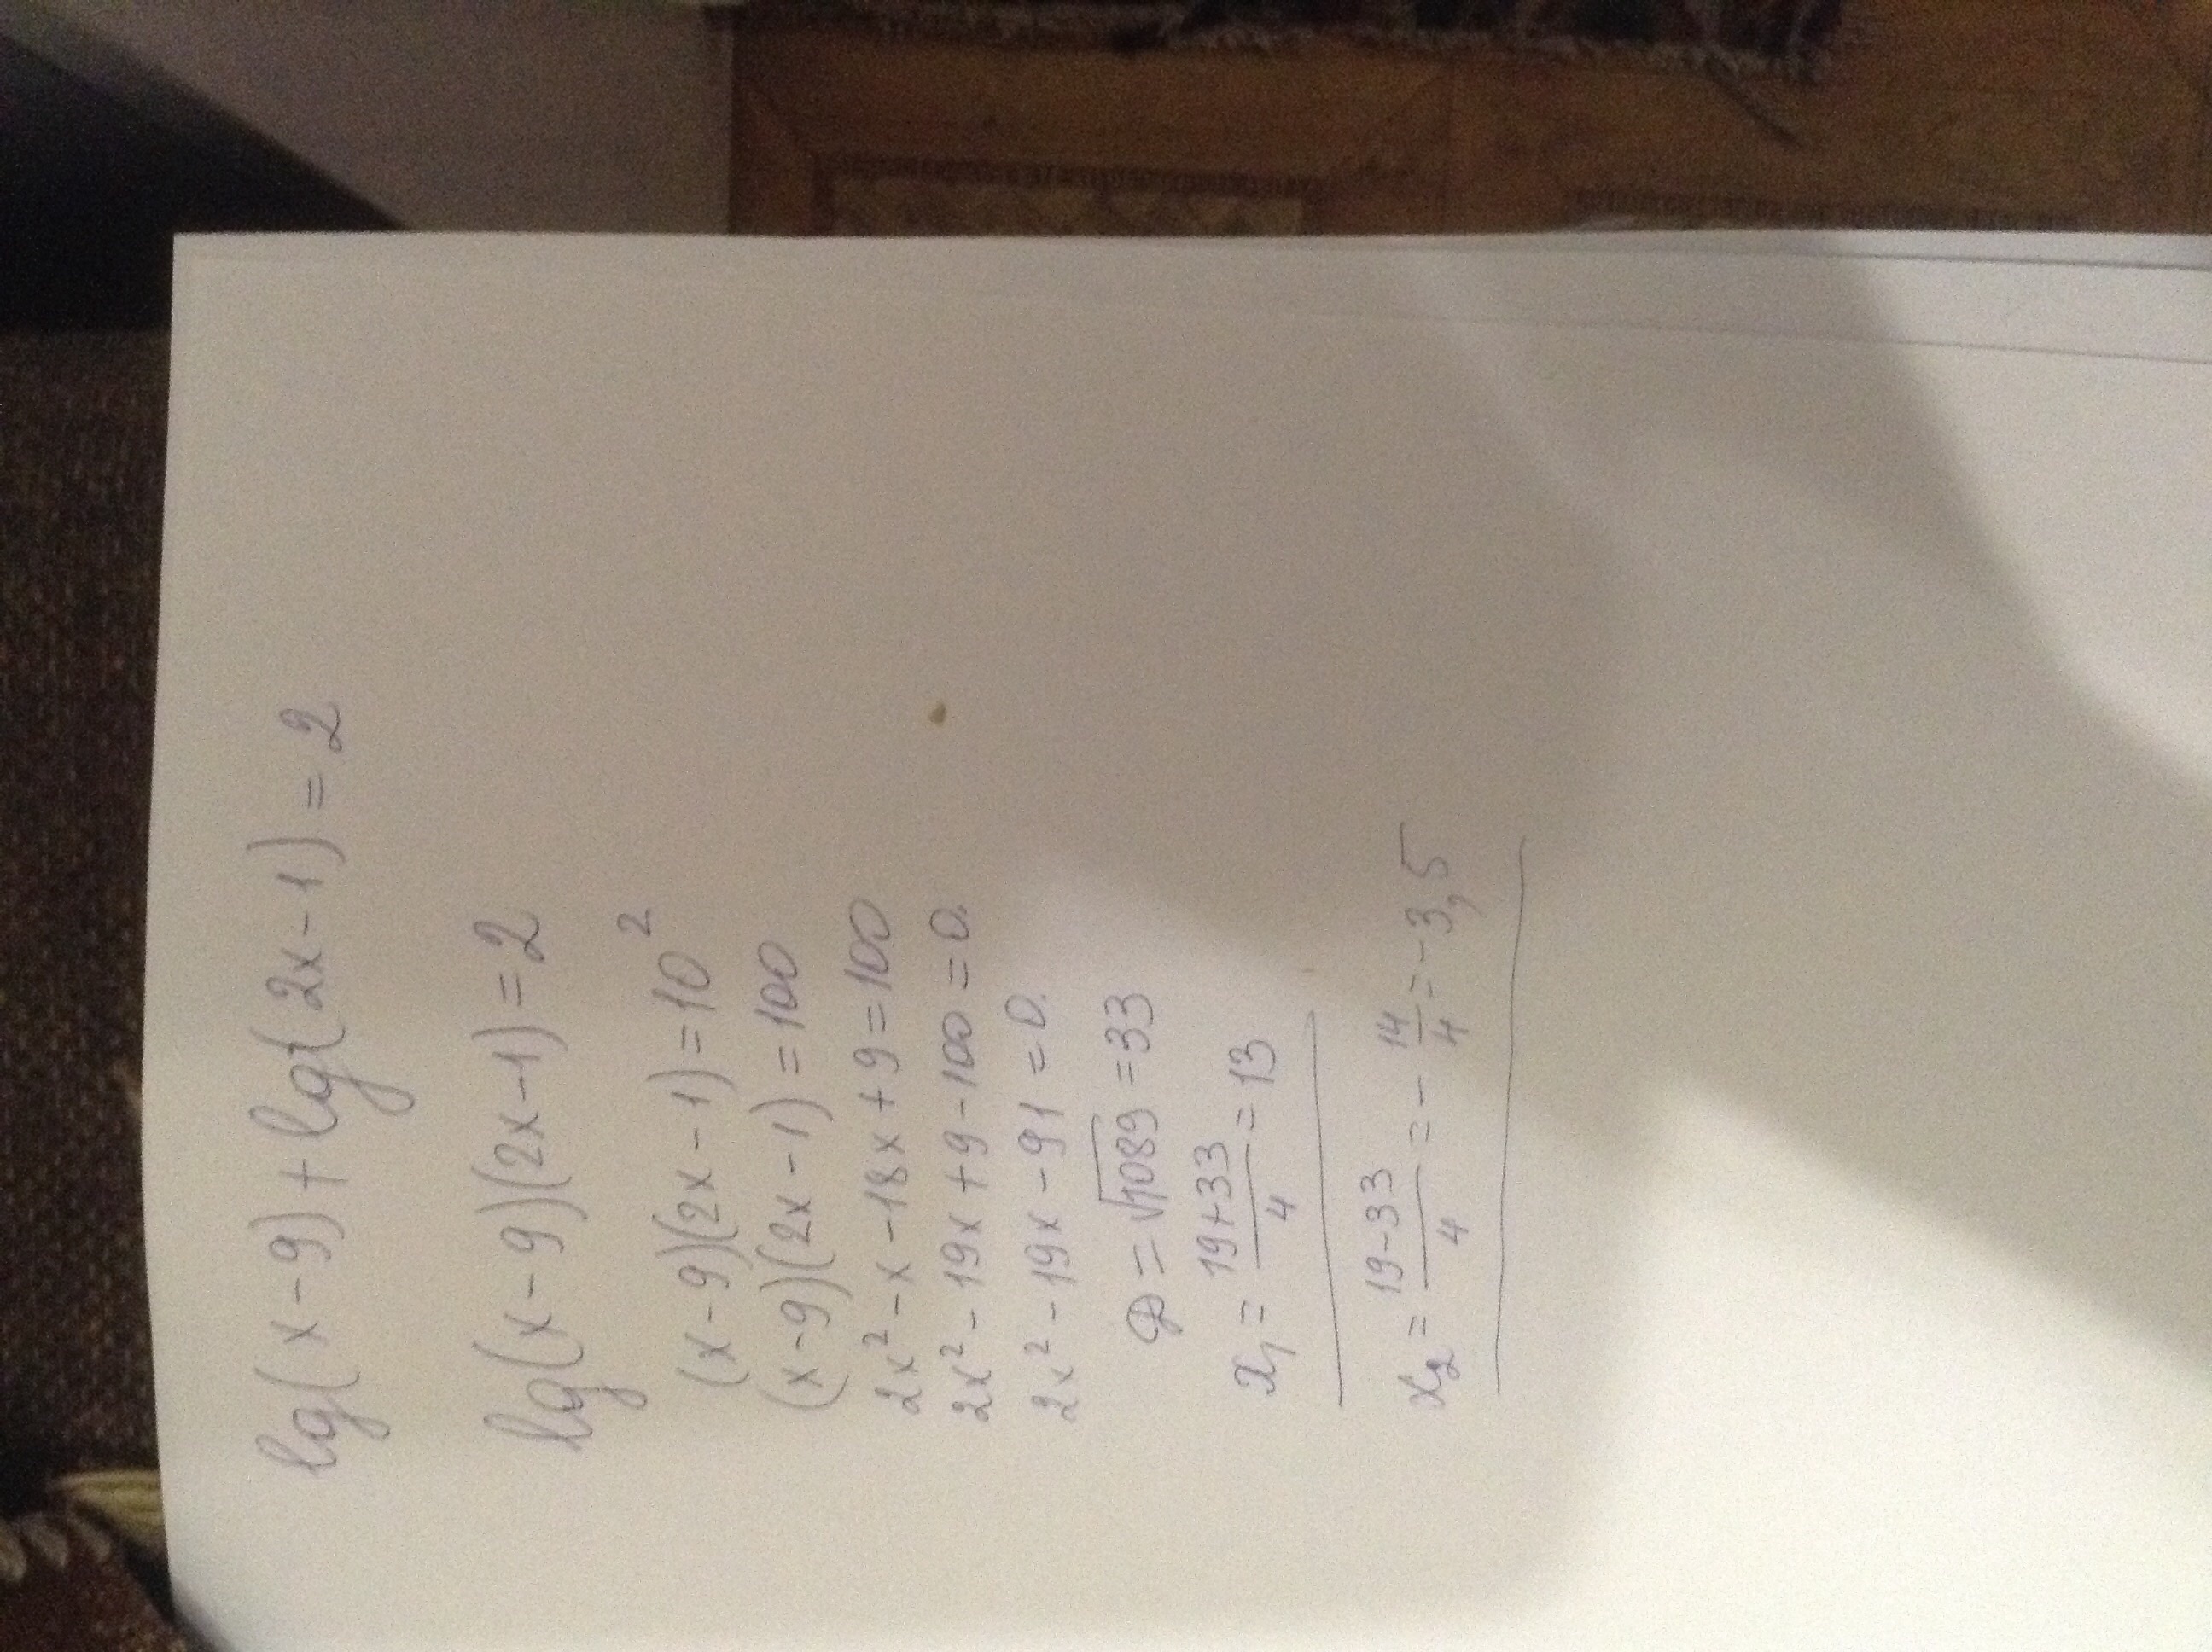 lg(x-9)+lg(2x-1)=2
lg(x-9)(2x-1)=2
(x-9)(2x-1)=10²
(x-9)(2x-1)=100
2x²-x-18x+9=100
2x²-19x+9-100=0.
2x²-19x-91=0.
D=√1089=33
x₁=(19+33)/4=13
x₂=(19-33)/4=-14/4=-3,5